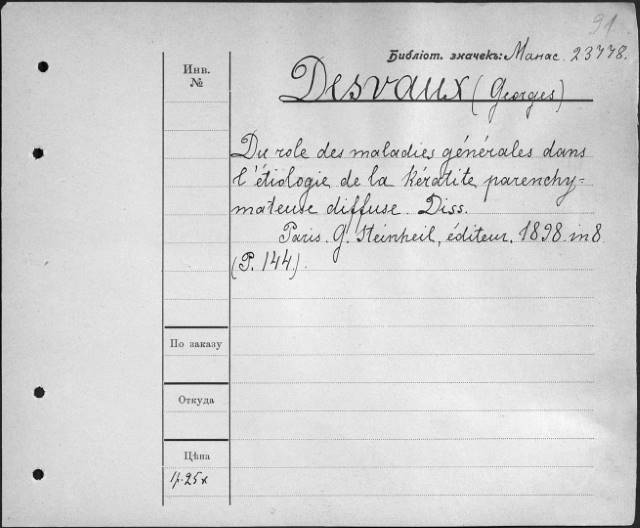 91
Библіот. значекъ: Манас. 23778.
Инв. №
Desvaux (Georges)
Du role des maladies générales dans
l'étiologie de la kératite parenchy-
mateuse diffuse. Diss.
Paris. G. Steinheil, éditeur. 1898 in 8
(P. 144).
По заказу
Откуда
Цѣна